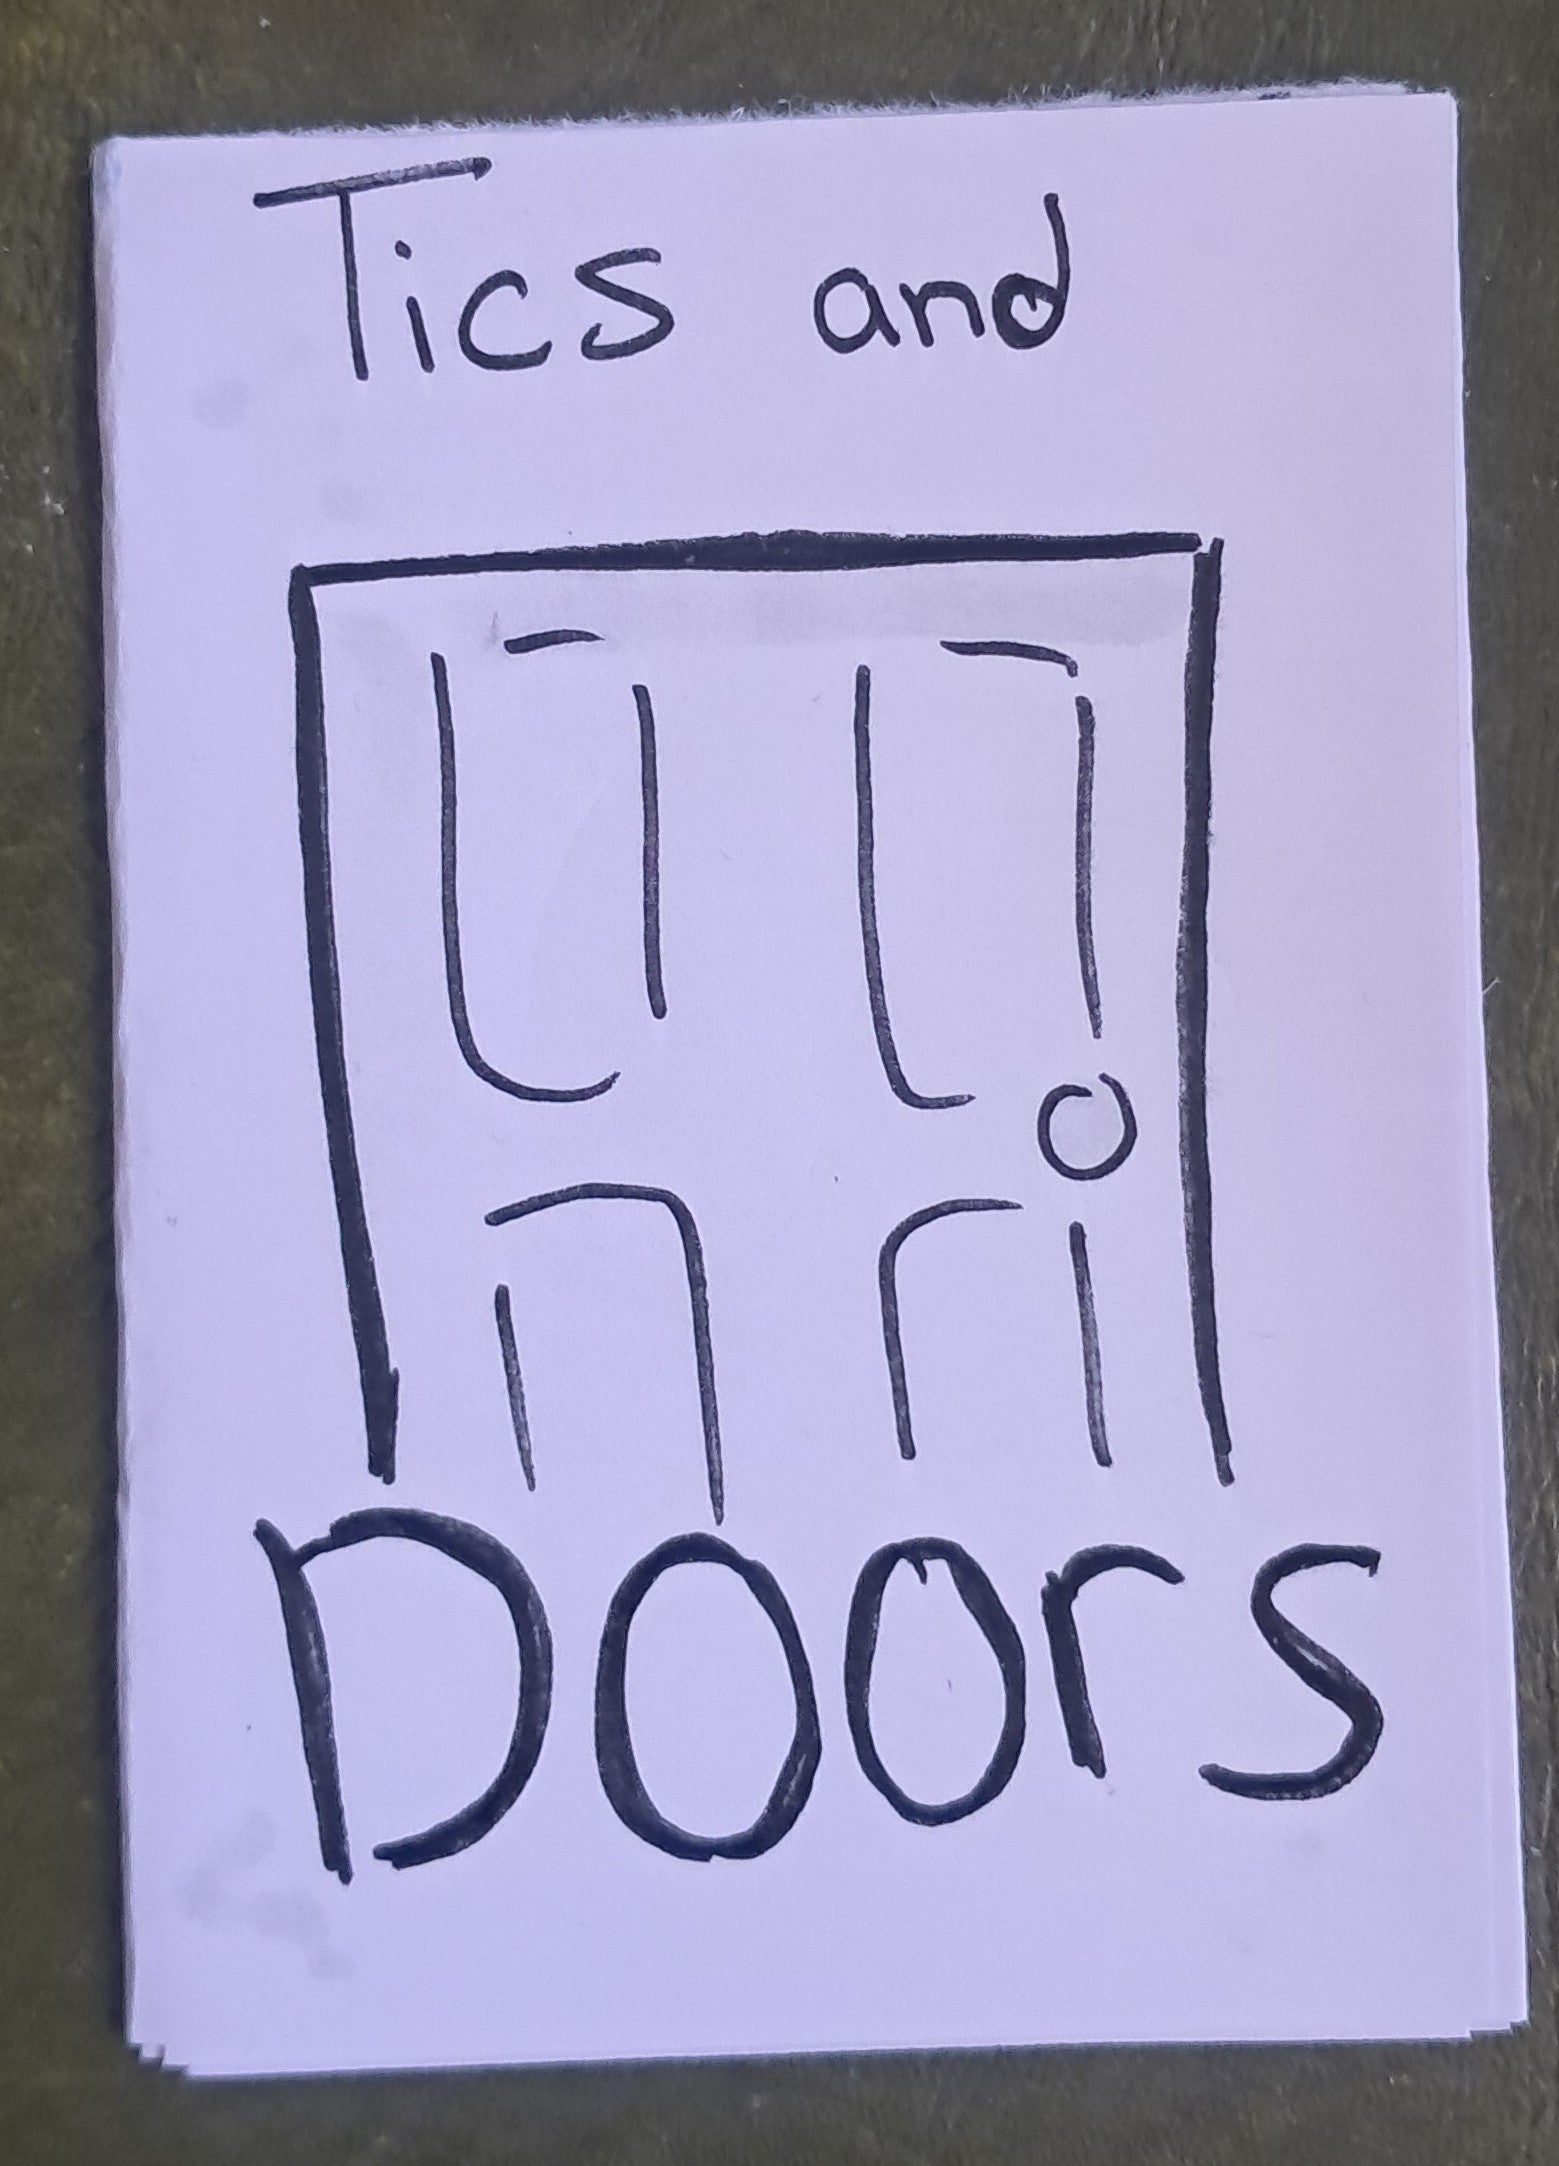 Tics and
Doors